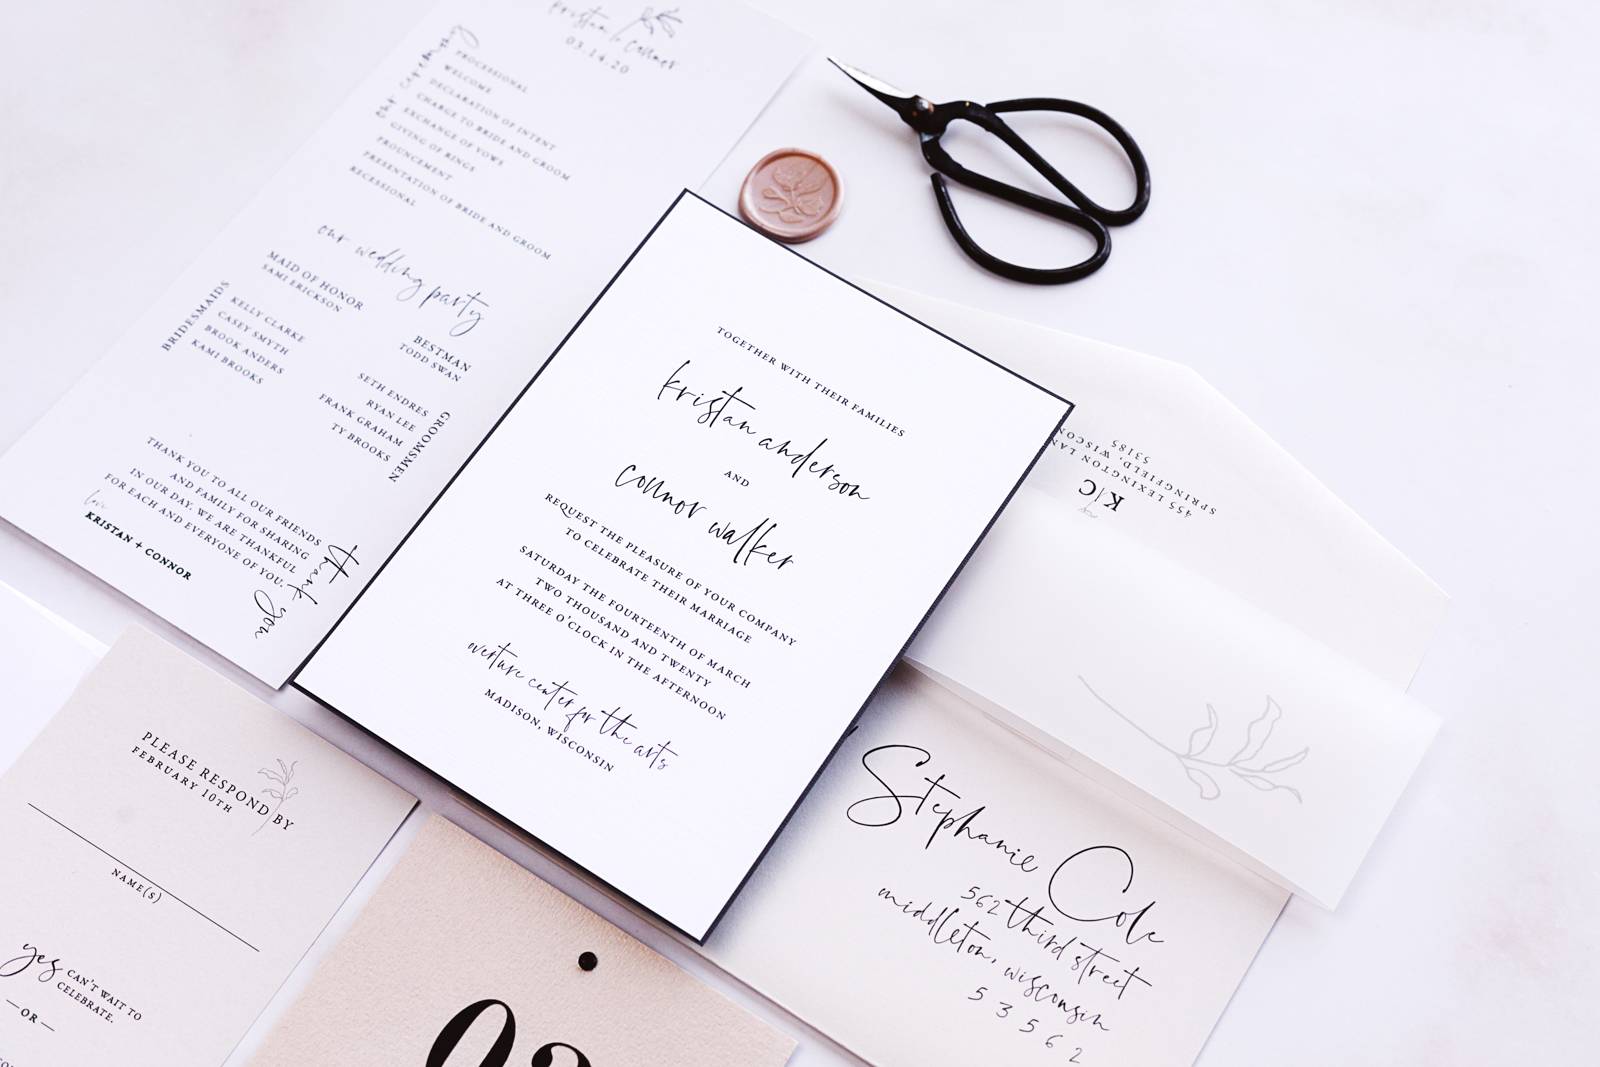 kristan & connor
03.14.20
the ceremony
PROCESSIONAL
WELCOME
DECLARATION OF INTENT
CHARGE TO BRIDE AND GROOM
EXCHANGE OF VOWS
GIVING OF RINGS
PROUNCEMENT
PRESENTATION OF BRIDE AND GROOM
RECESSIONAL
our wedding party
MAID OF HONOR
SAMI ERICKSON
BRIDESMAIDS
KELLY CLARKE
CASEY SMYTH
BROOK ANDERS
KAMI BROOKS
BESTMAN
TODD SWAN
SETH ENDRES
RYAN LEE
FRANK GRAHAM
TY BROOKS
GROOMSMEN
THANK YOU TO ALL OUR FRIENDS
AND FAMILY FOR SHARING
IN OUR DAY. WE ARE THANKFUL
FOR EACH AND EVERYONE OF YOU.
love
KRISTAN + CONNOR
thank you
TOGETHER WITH THEIR FAMILIES
kristan anderson
AND
connor walker
REQUEST THE PLEASURE OF YOUR COMPANY
TO CELEBRATE THEIR MARRIAGE
SATURDAY THE FOURTEENTH OF MARCH
TWO THOUSAND AND TWENTY
AT THREE O'CLOCK IN THE AFTERNOON
overture center for the arts
MADISON, WISCONSIN
K|C
455 LEXINGTON LAN
SPRINGFIELD, WISCON
53185
Stephanie Cole
562 third street
middleton, wisconsin
53562
PLEASE RESPOND BY
FEBRUARY 10TH
NAME(S)
yes CAN'T WAIT TO
CELEBRATE.
—OR—
02